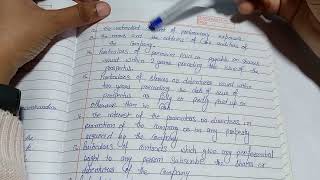 the estimated amount of preliminary expenses
the names and the address of the auditors of
the Company.
Particulars of premium fixed or payable on shares
issued within 2 years preceding the issue of the
prospectus
Particulars of shares or debentures issued within
two years preceding the date of issue of
prospectus as fully or partly paid up or
otherwise than in cash
the interest of the promoters or in directors in
promotion of the company or in any property
acquired by the company
Particulars of contracts which give any preferential
right to any person subscribe the shares or
debentures of the Company